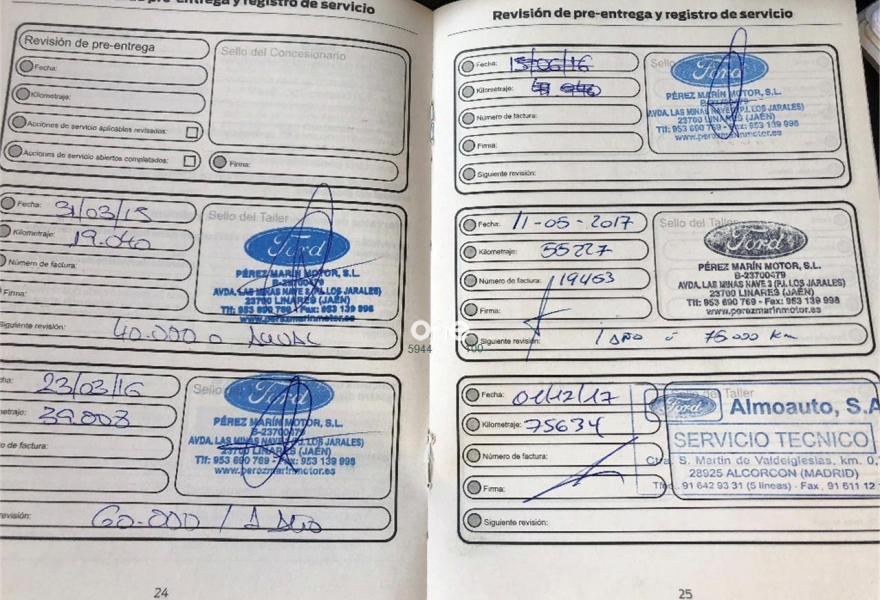 de pre-entrega y registro de servicio
Revisión de pre-entrega
Sello del Concesionario
Fecha:
Kilometraje:
Acciones de servicio aplicables revisadas:
Acciones de servicio abiertos completados:
Firma:
Fecha: 31/03/15
Kilometraje: 19.040
Número de factura:
Firma:
Siguiente revisión: 40.000 o ANUAL
Sello del Taller
Ford
PÉREZ MARÍN MOTOR, S.L.
B-23700479
AVDA. LAS MINAS NAVE 3 (P.I. LOS JARALES)
23700 LINARES (JAÉN)
Tlf: 953 690 769 - Fax: 953 139 998
www.perezmarinmotor.es
cha: 23/03/16
metraje: 39.008
o de factura:
revisión: 60.000 / 1 AÑO
Sello
Ford
PÉREZ MARÍN MOTOR, S.L.
B-23700479
AVDA. LAS MINAS NAVE 3 (P.I. LOS JARALES)
23700 LINARES (JAÉN)
Tlf: 953 690 769 - Fax: 953 139 998
www.perezmarinmotor.es
24
Revisión de pre-entrega y registro de servicio
Fecha: 15/06/16
Kilometraje:
Número de factura:
Firma:
Siguiente revisión:
Sello
Ford
PÉREZ MARÍN MOTOR, S.L.
B-23700479
AVDA. LAS MINAS NAVE 3 (P.I. LOS JARALES)
23700 LINARES (JAÉN)
Tlf: 953 690 769 - Fax: 953 139 998
www.perezmarinmotor.es
Fecha: 11-05-2017
Kilometraje: 55227
Número de factura: 19453
Firma:
Siguiente revisión: 1 AÑO ó 75000 km
Sello del Taller
Ford
PÉREZ MARÍN MOTOR, S.L.
B-23700479
AVDA. LAS MINAS NAVE 3 (P.I. LOS JARALES)
23700 LINARES (JAÉN)
Tlf: 953 690 769 - Fax: 953 139 998
www.perezmarinmotor.es
one
5944 100
Fecha: 01/12/17
Kilometraje: 75634
Número de factura:
Firma:
Siguiente revisión:
Sello del Taller
Ford Almoauto, S.A
SERVICIO TECNICO
Ctra. S. Martin de Valdeiglesias, km. 0,
28925 ALCORCON (MADRID)
Tfno. 91 642 93 31 (5 lineas) - Fax. 91 611 12
25